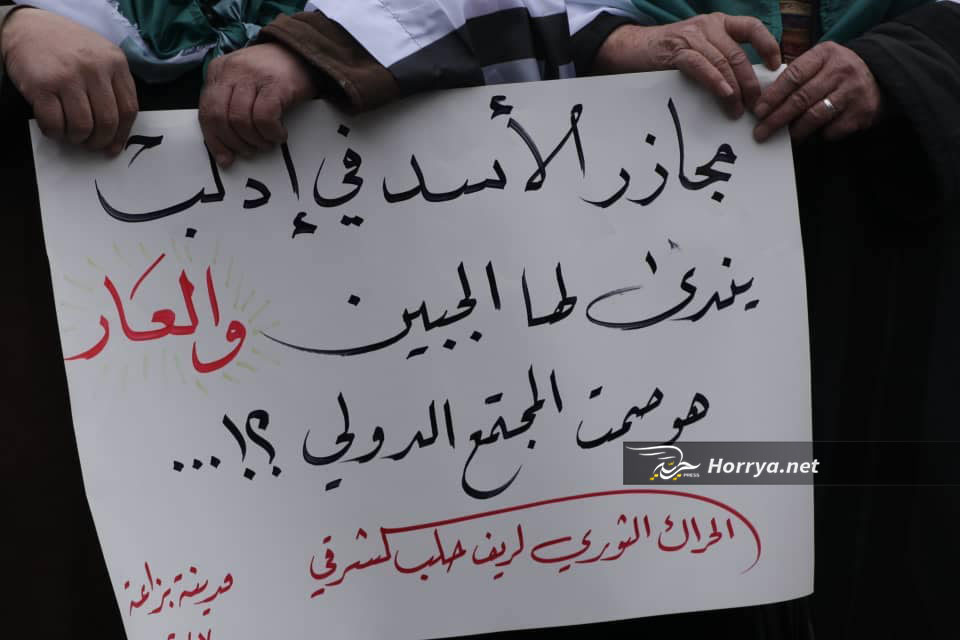 مجازر الأسد في إدلب
يندى لها الجبين والعار
هو صمت المجتمع الدولي ؟!...
الحراك الثوري لريف حلب الشرقي
مدينة بزاعة
Horrya.net
PRESS